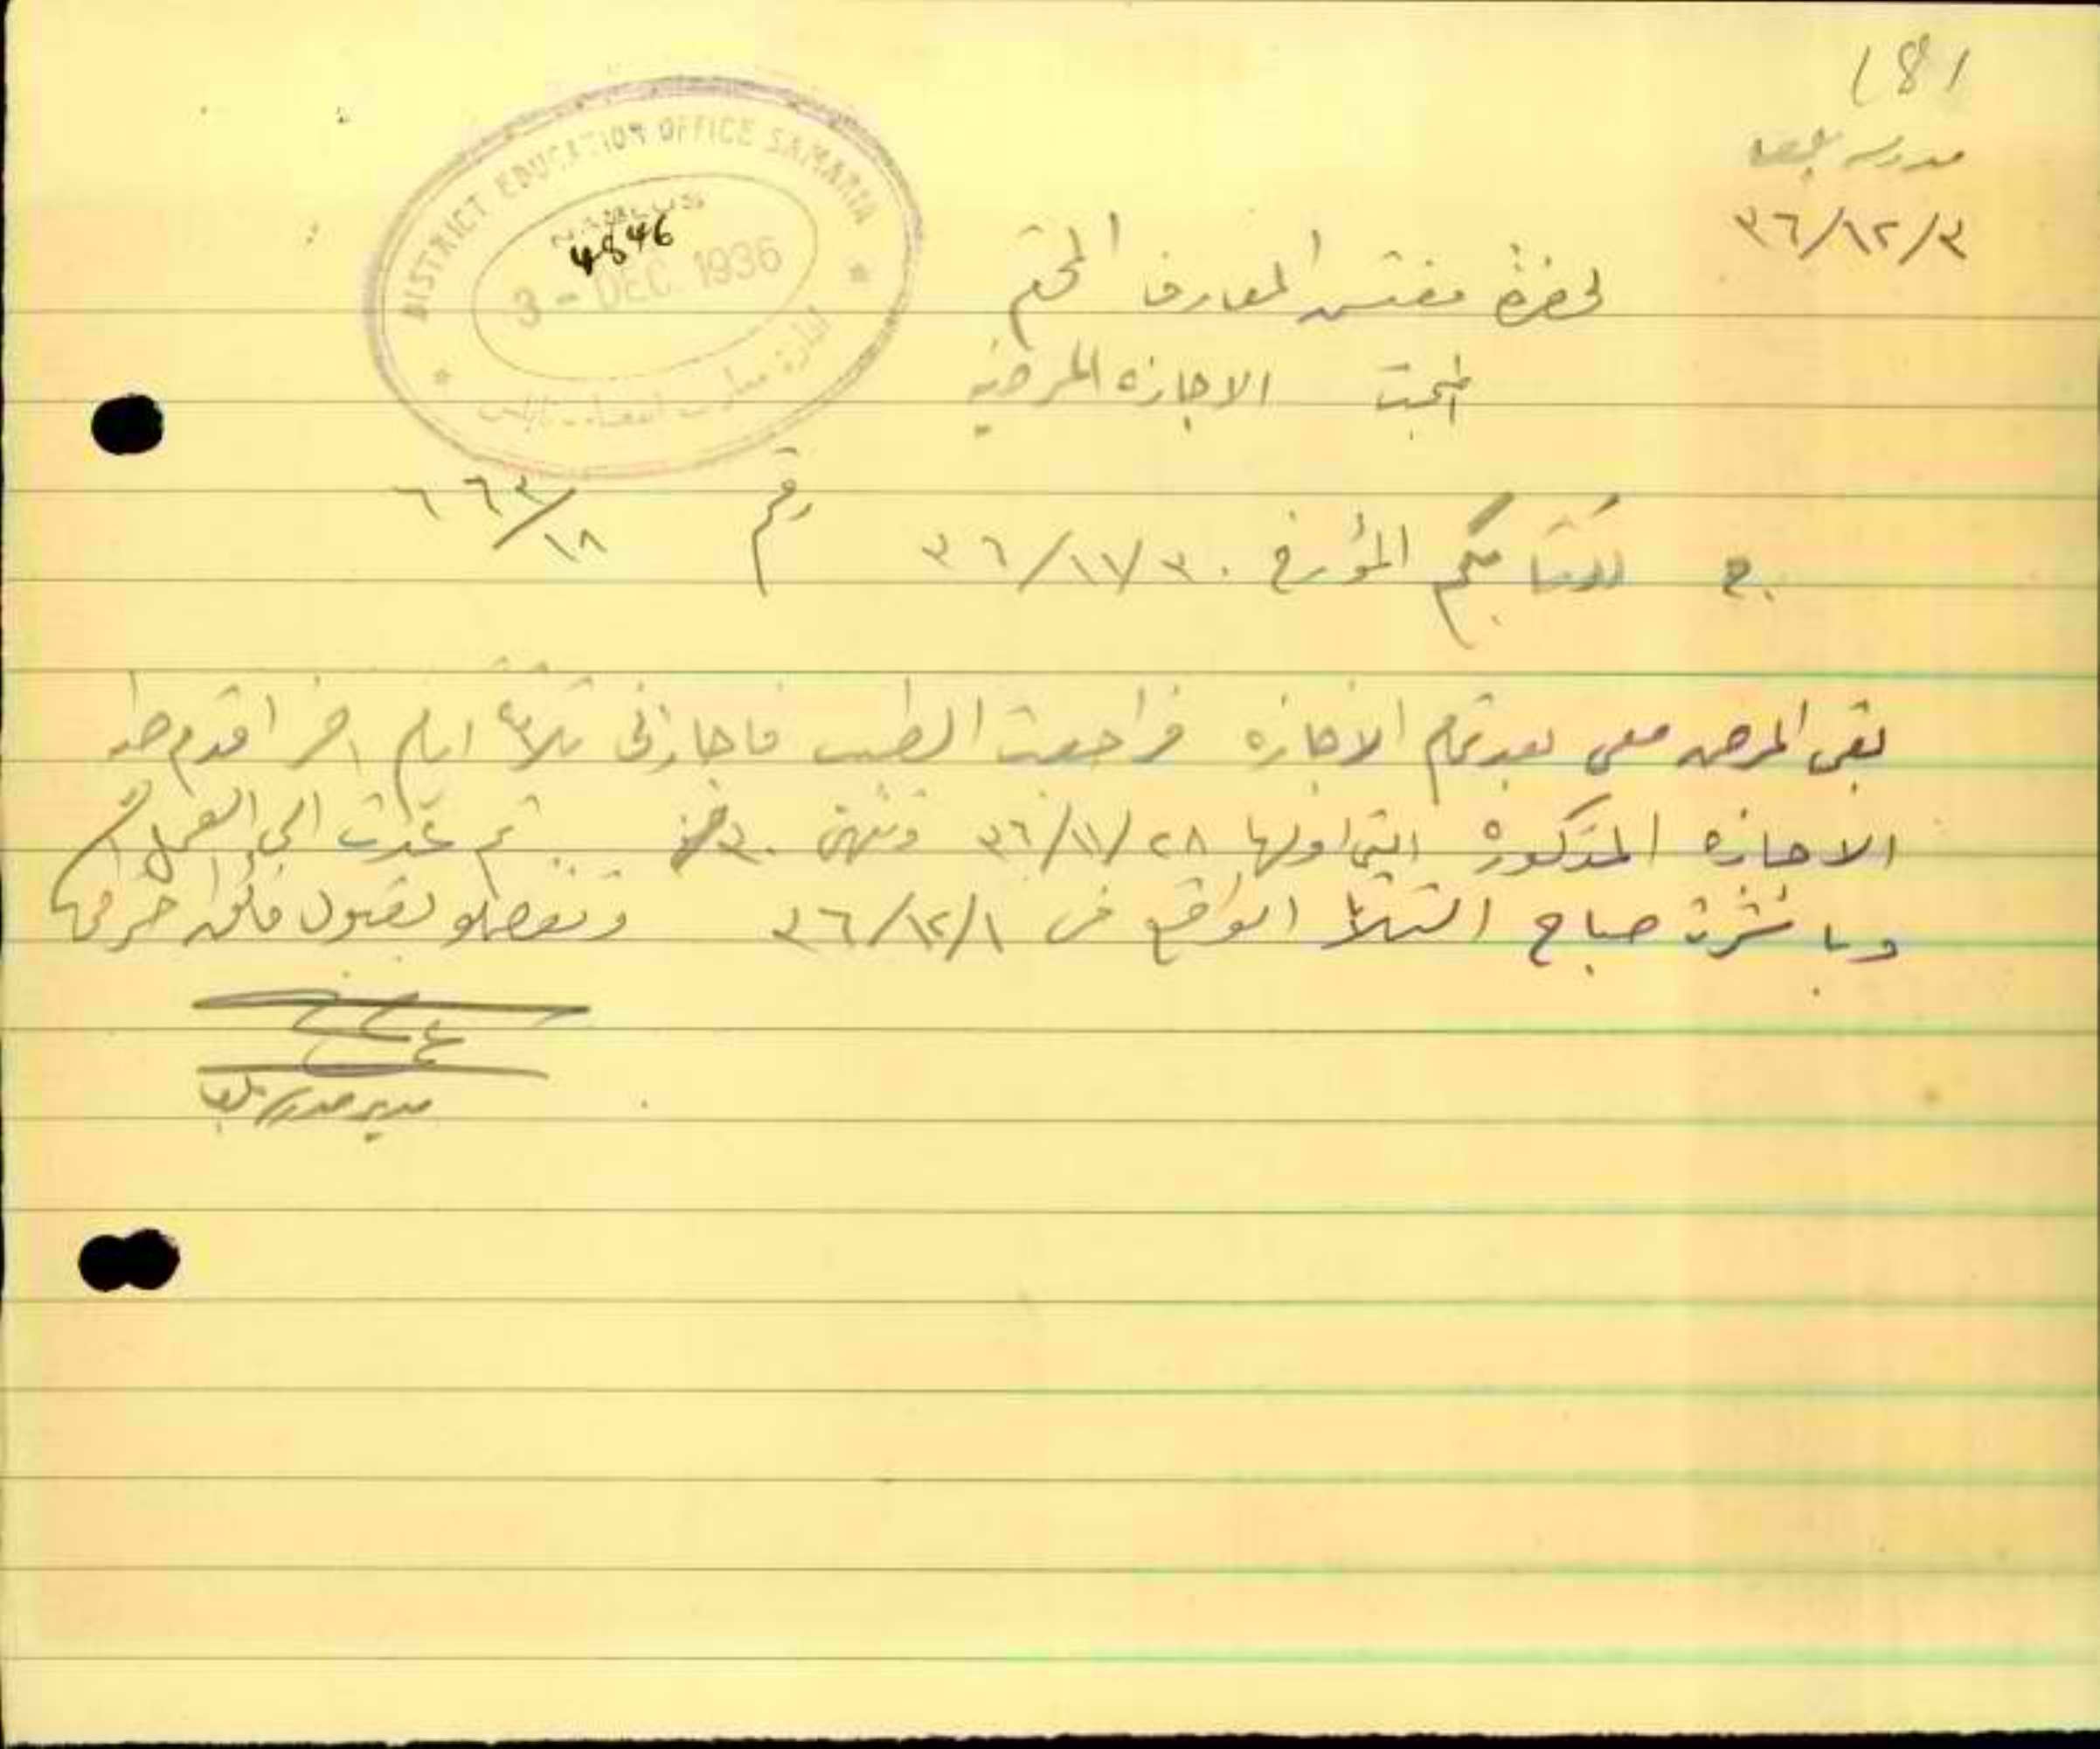 181
مدرسة بلعا
٣٦/١٢/٣
DISTRICT EDUCATION OFFICE SAMARIA
NABLUS
4846
3 - DEC. 1936
ادارة معارف نابلس
لحضرة مفتش المعارف المحترم
البحث الاجازه المرضيه
ج لكتابكم المؤرخ ٣٦/١١/٣٠ رقم ٦٦٣/١٨
بقى المرض معى بعد تمام الاجازه فراجعت الطبيب فاجازنى ثلاثة ايام اخر اقدم طيه
الاجازه المذكورة التى اولها ٣٦/١١/٢٨ وتنتهى ٣٠ منه ثم عدت الى العمل
وباشرت صباح الثلاثا الواقع فى ٣٦/١٢/١ وتفضلو بقبول فائق احترامى
مدير مدرسة بلعا